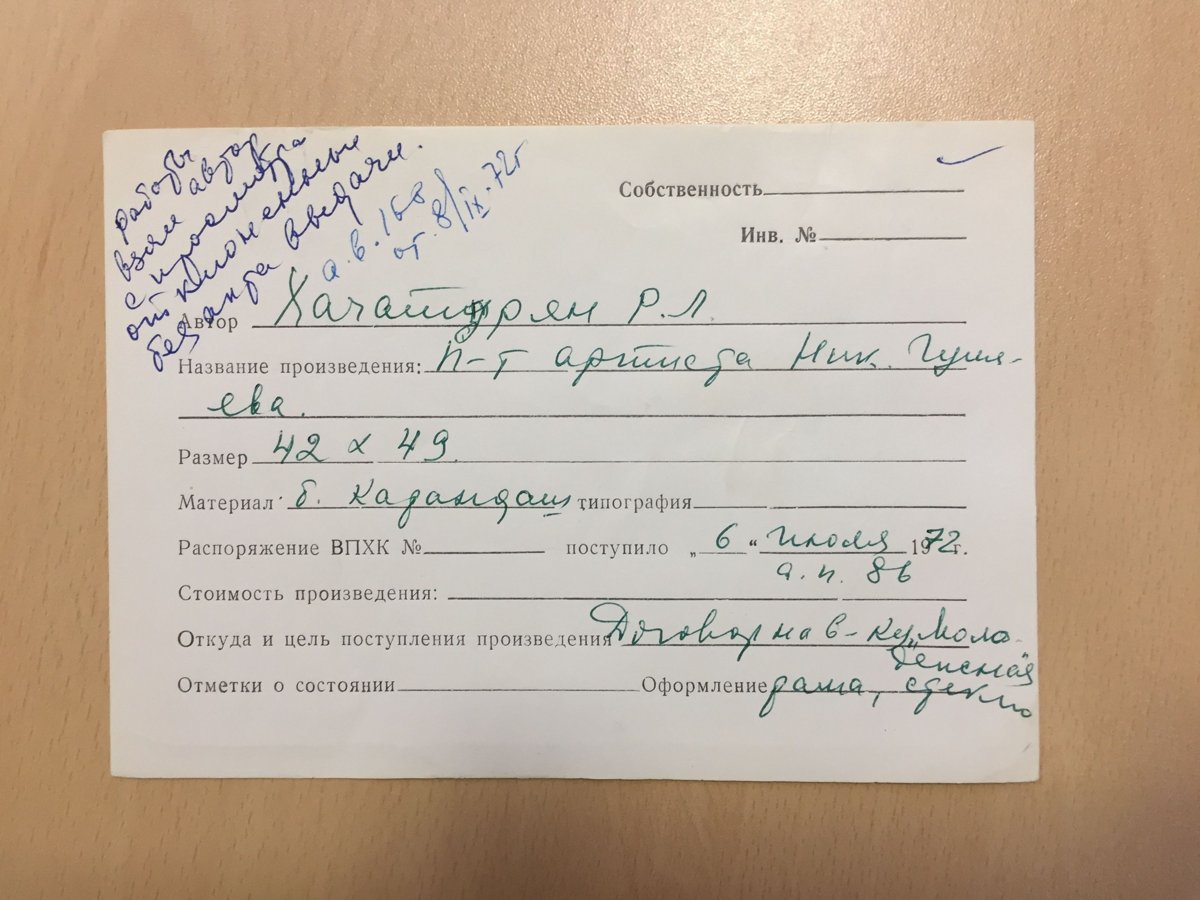 работы
взял автор
с просмотра
отклоненные
без акта выдачи.
а.в. 168
от 8/IX-72г
Собственность
Инв. №
Автор Хачатурян Р.Л.
Название произведения: П-т артиста Ник. Гуля-
ева.
Размер 42 х 49.
Материал б. карандаш типография
Распоряжение ВПХК № поступило „6“ июля 1972 г.
а.п. 86
Стоимость произведения:
Откуда и цель поступления произведения Договор на в-ку „Моло-
дежная“
Отметки о состоянии Оформление рама, стекло